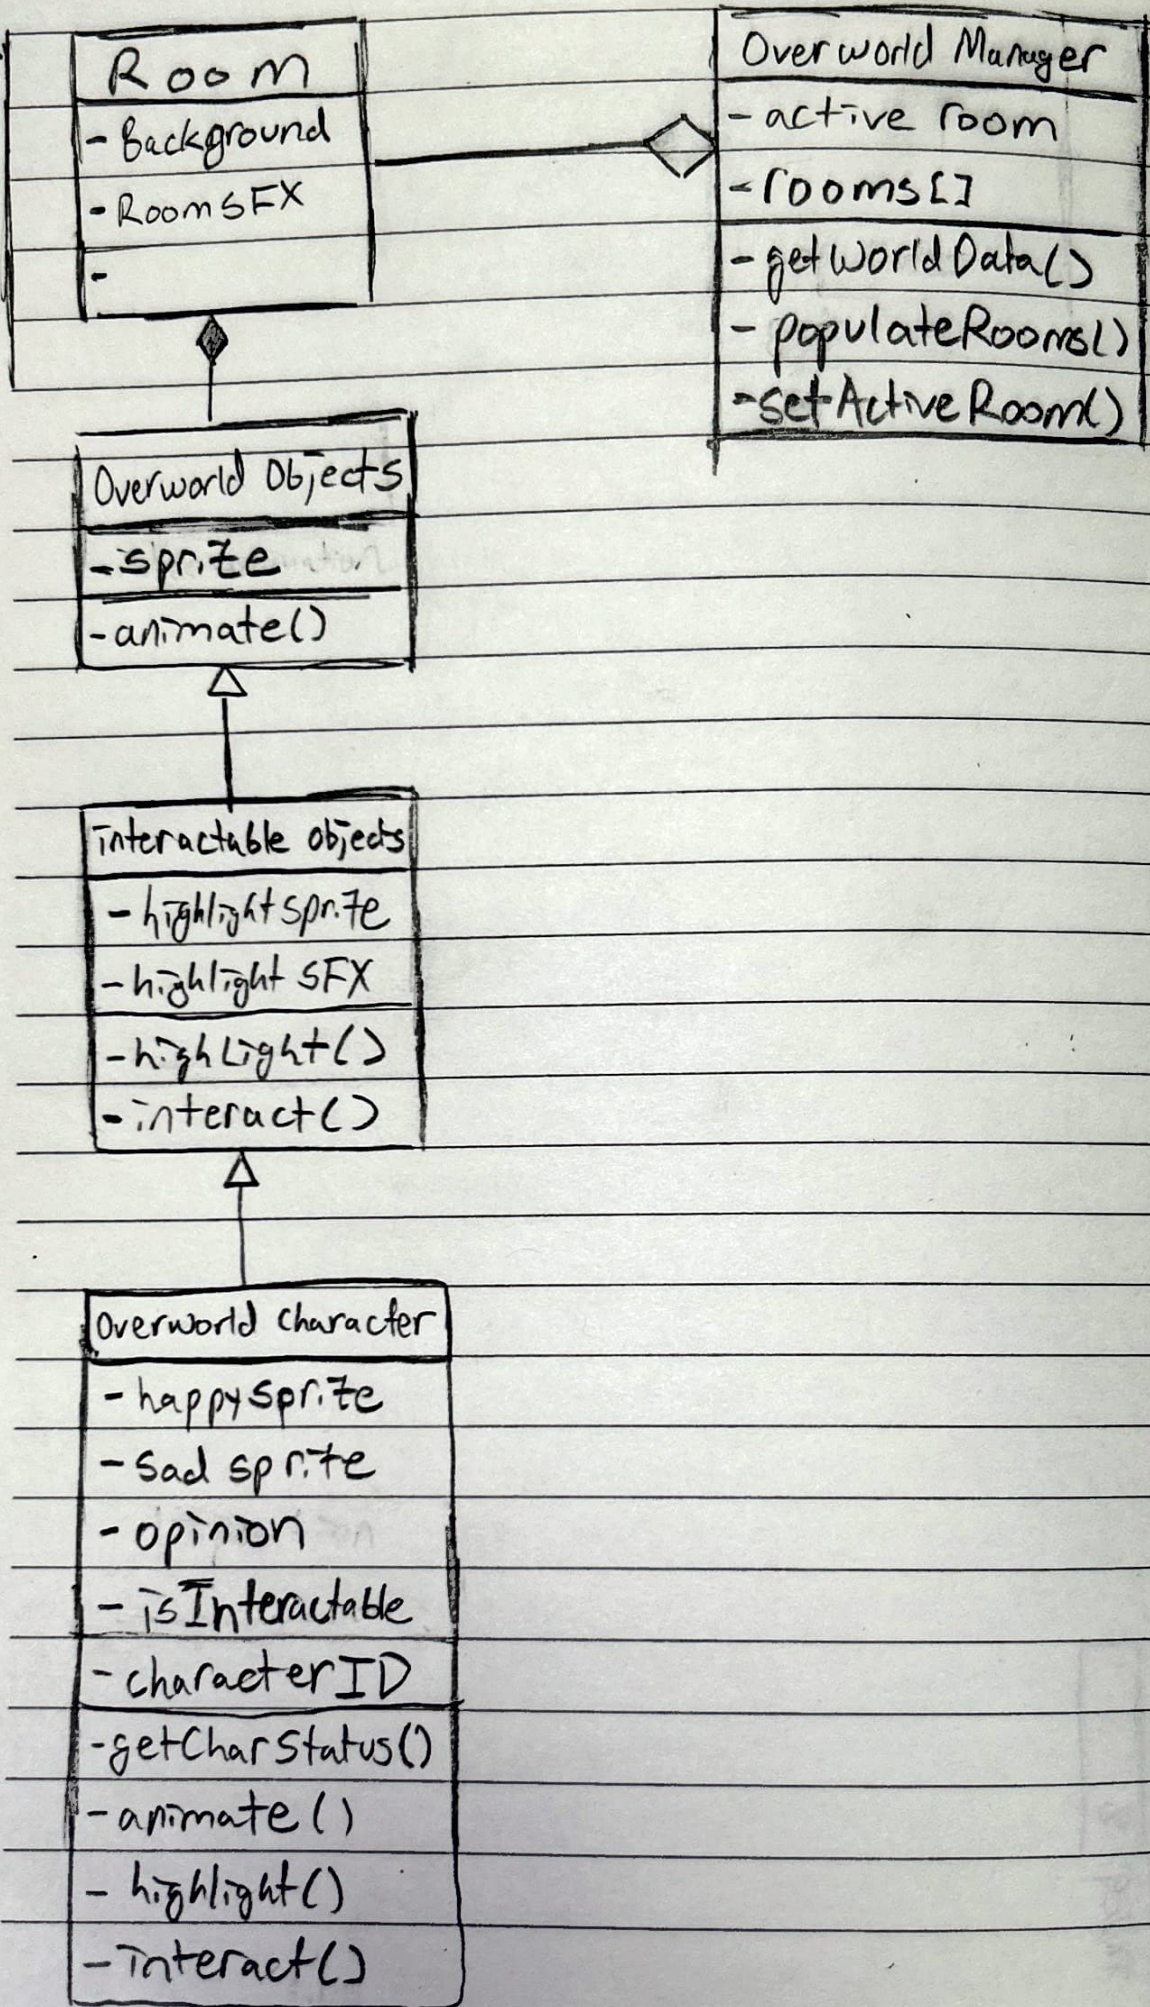 Room
- Background
- RoomSFX
-
Overworld Manager
- active room
- rooms[]
- getWorldData()
- populateRooms()
- setActiveRoom()
Overworld Objects
- sprite
- animate()
interactable objects
- highlight sprite
- highlight SFX
- highLight()
- interact()
Overworld character
- happy sprite
- sad sprite
- opinion
- isInteractable
- characterID
- getCharStatus()
- animate()
- highlight()
- interact()